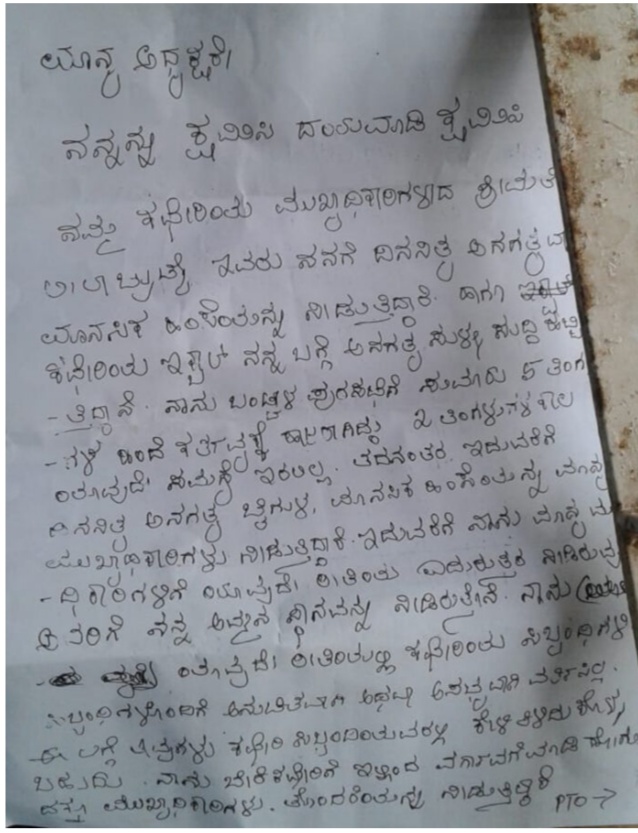 ಮಾನ್ಯ ಅಧ್ಯಕ್ಷರೇ
ನನ್ನನ್ನು ಕ್ಷಮಿಸಿ ದಯಮಾಡಿ ಕ್ಷಮಿಸಿ
ನಮ್ಮ ಕಛೇರಿಯ ಮುಖ್ಯಾಧಿಕಾರಿಗಳಾದ ಶ್ರೀಮತಿ
ಇವರು ನನಗೆ ದಿನನಿತ್ಯ ಅನಗತ್ಯವಾ
ಮಾನಸಿಕ ಹಿಂಸೆಯನ್ನು ನೀಡುತ್ತಿದ್ದಾರೆ. ಹಾಗೂ
ಕಛೇರಿಯ ನನ್ನ ಬಗ್ಗೆ ಅನಗತ್ಯ ಸುಳ್ಳು ಸುದ್ದಿ
-ತ್ತಿದ್ದಾನೆ. ನಾನು ಬಂಟ್ವಾಳ ಪುರಸಭೆಗೆ ಸುಮಾರು 5 ತಿಂಗ
-ಗಳ ಹಿಂದೆ ಕರ್ತವ್ಯಕ್ಕೆ ಹಾಜರಾಗಿದ್ದು 2 ತಿಂಗಳುಗಳ ಕಾಲ
ಯಾವುದೇ ಸಮಸ್ಯೆ ಇರಲಿಲ್ಲ. ತದನಂತರ ಇದುವರೆಗೆ
ದಿನನಿತ್ಯ ಅನಗತ್ಯ ಬೈಗುಳ, ಮಾನಸಿಕ ಹಿಂಸೆಯನ್ನು ಮಾನ್ಯ
ಮುಖ್ಯಾಧಿಕಾರಿಗಳು ನೀಡುತ್ತಿದ್ದಾರೆ. ಇದುವರೆಗೆ ನಾನು ಮಾನ್ಯ ಮು
-ಧಿಕಾರಿಗಳಿಗೆ ಯಾವುದೇ ರೀತಿಯ ಎದುರುತ್ತರ ನೀಡಿರುವು
ಅವರಿಗೆ ನನ್ನ ಅಮ್ಮನ ಸ್ಥಾನವನ್ನು ನೀಡಿರುತ್ತೇನೆ. ನಾನು
ಯಾವುದೇ ರೀತಿಯಲ್ಲಿ ಕಛೇರಿಯ ಸಿಬ್ಬಂಧಿಗಳಿ
ಸಿಬ್ಬಂಧಿಗಳೊಂದಿಗೆ ಅನುಚಿತವಾಗಿ ಅಥವಾ ಅಸಭ್ಯವಾಗಿ ವರ್ತಿಸಿಲ್ಲ.
ಈ ಬಗ್ಗೆ ಕಛೇರಿ ಸಿಬ್ಬಂದಿಯವರಲ್ಲಿ ಕೇಳಿ ತಿಳಿದು ಕೊಳ್ಳ
ಬಹುದು. ನಾನು ಬೇರೆ ಕಛೇರಿಗೆ ಇಲ್ಲಿಂದ ವರ್ಗಾವಣೆ ಮಾಡಿ
ಮುಖ್ಯಾಧಿಕಾರಿಗಳು. ತೊಂದರೆಯನ್ನು ನೀಡುತ್ತಿದ್ದಾರೆ
PTO→